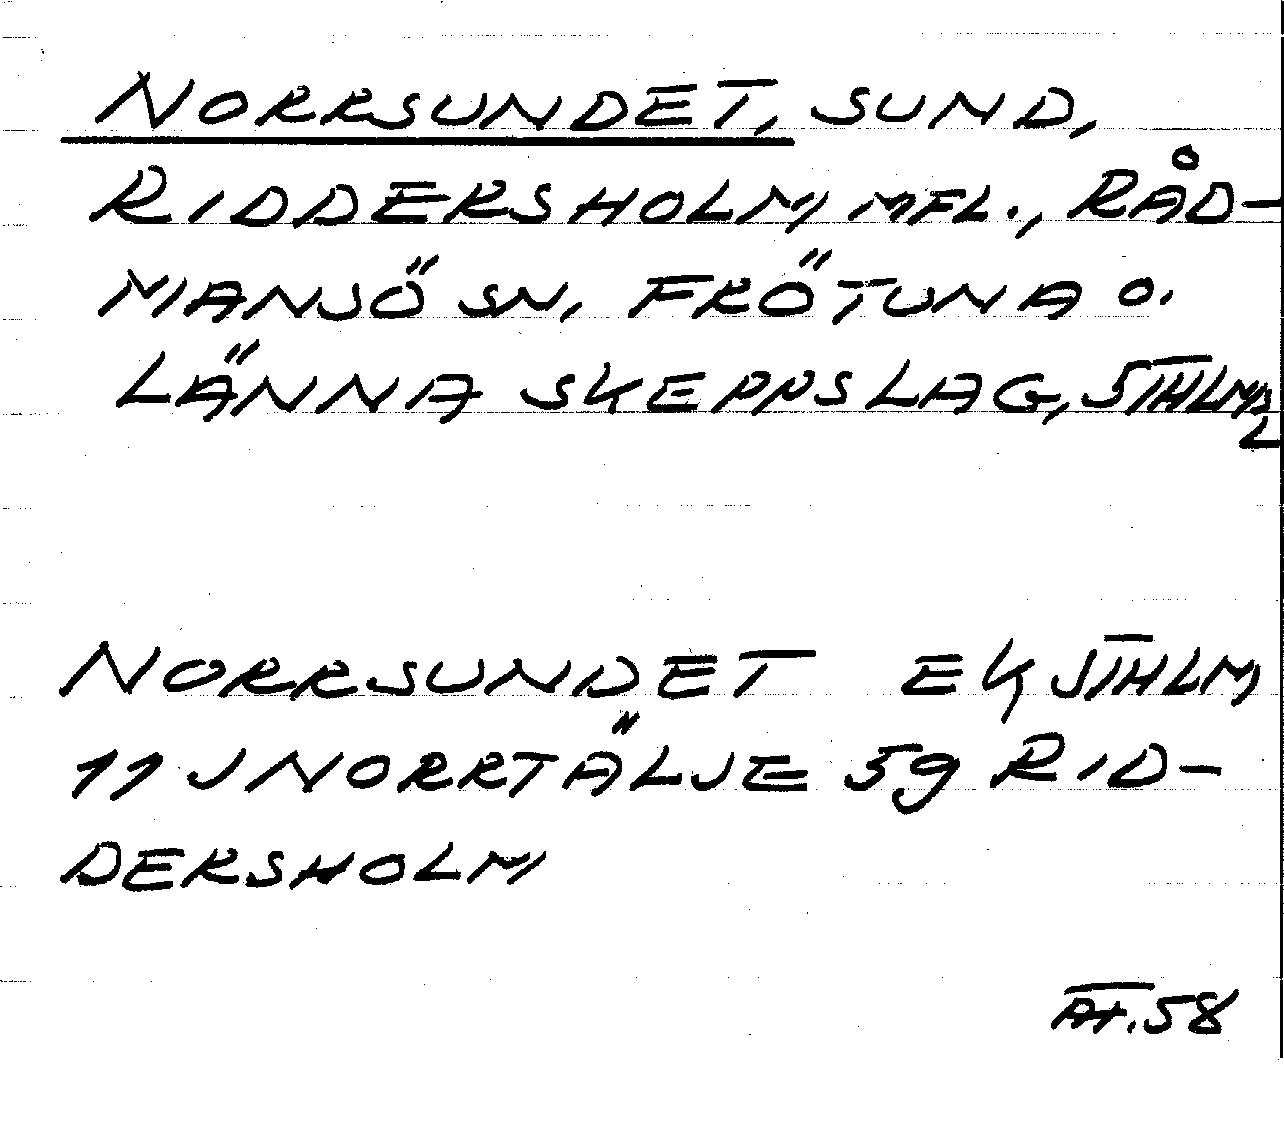 NORRSUNDET, SUND,
RIDDERSHOLM MFL., RÅD-
MANSÖ SN, FRÖTUNA O.
LÄNNA SKEPPSLAG, STHLMS
L
NORRSUNDET EK STHLM
11 J NORRTÄLJE 59 RID-
DERSHOLM
AT. 58